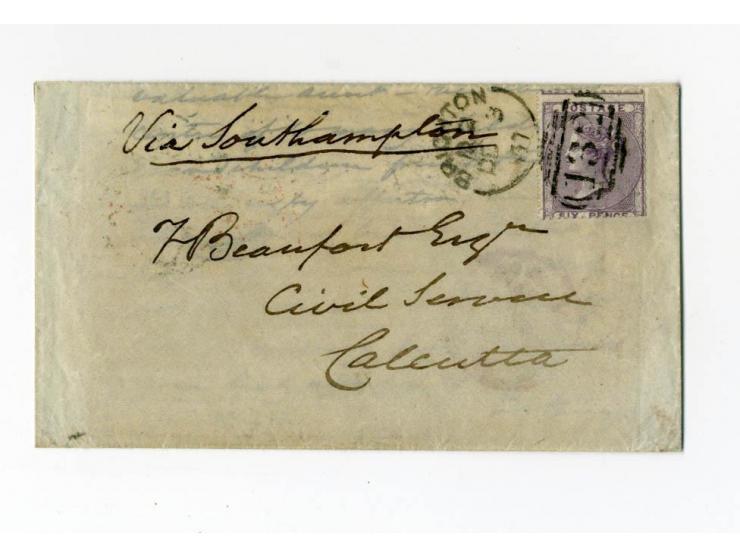 Via Southampton
BRIGHTON
57
POSTAGE
132
SIX PENCE
F Beaufort Esqr
Civil Service
Calcutta